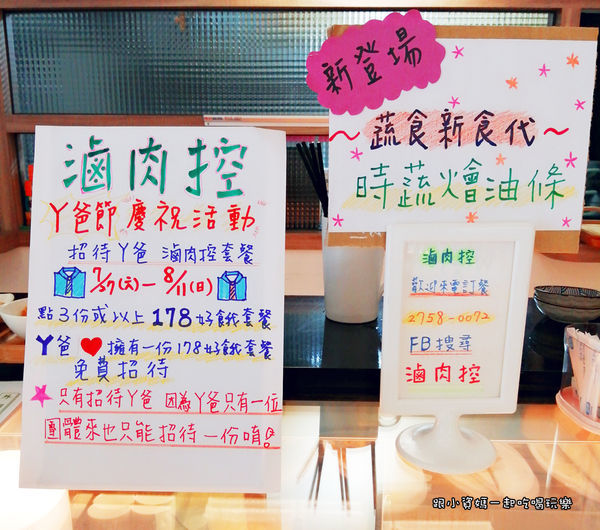 滷肉控
ㄚ爸節慶祝活動
招待ㄚ爸 滷肉控套餐
7/27(六)-8/11(日)
點3份或以上178好餓套餐
ㄚ爸❤擁有一份178好餓套餐
免費招待
只有招待ㄚ爸 因為ㄚ爸只有一位
團體來也只能招待一份唷
新登場
~蔬食新食代~
時蔬燴油條
滷肉控
歡迎來電訂餐
2758-0072
FB搜尋
滷肉控
跟小資媽一起吃喝玩樂